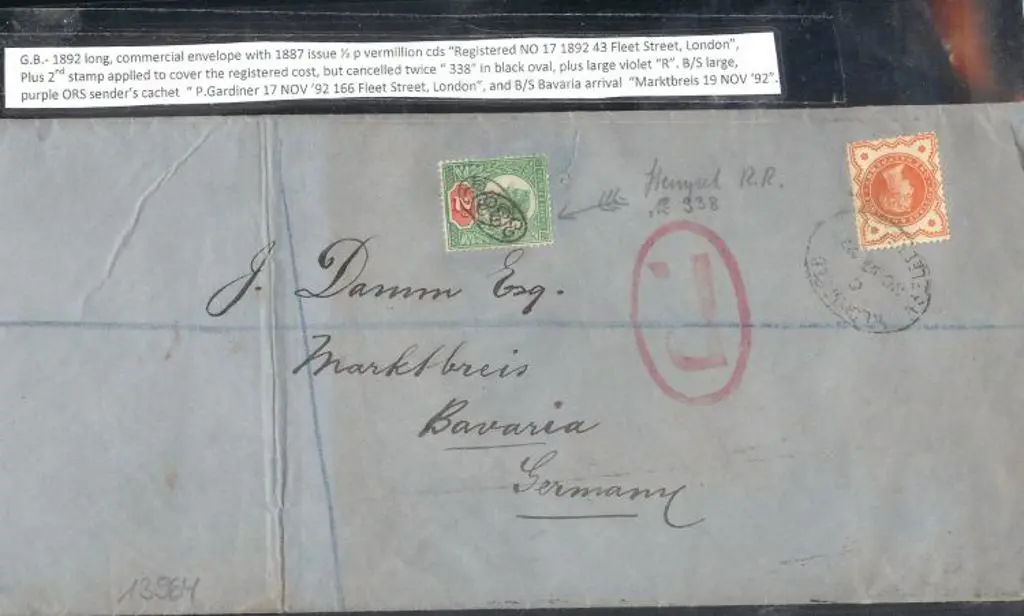 G.B.- 1892 long, commercial envelope with 1887 issue ½ p vermillion cds “Registered NO 17 1892 43 Fleet Street, London”,
Plus 2nd stamp applied to cover the registered cost, but cancelled twice “ 338” in black oval, plus large violet “R”. B/S large,
purple ORS sender’s cachet “ P.Gardiner 17 NOV ’92 166 Fleet Street, London”, and B/S Bavaria arrival “Marktbreis 19 NOV ’92”.
R.R.
338
2
R
J. Damm Esq.
Marktbreis
Bavaria
Germany
13964